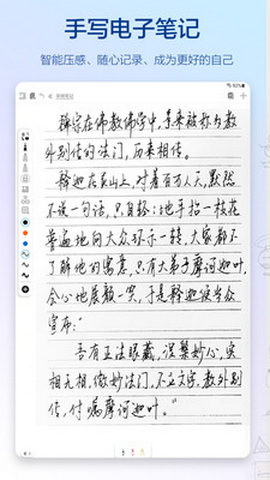 手写电子笔记
智能压感、随心记录、成为更好的自己
禅宗在佛教佛学中,是来被称为教
外别传的法门,历来相传。
释迦在灵山上,对着百万人天,默然
不说一句话,只自轻轻地手拈一枝花
普遍地向大众环示一转,大家都不
了解他的寓意,只有大弟子摩诃迦叶,
会心地展颜一笑,于是释迦便当众
宣布:
吾有正法眼藏,涅槃妙心,实
相无相,微妙法门,不立文字,教外别
传,付嘱摩诃迦叶。